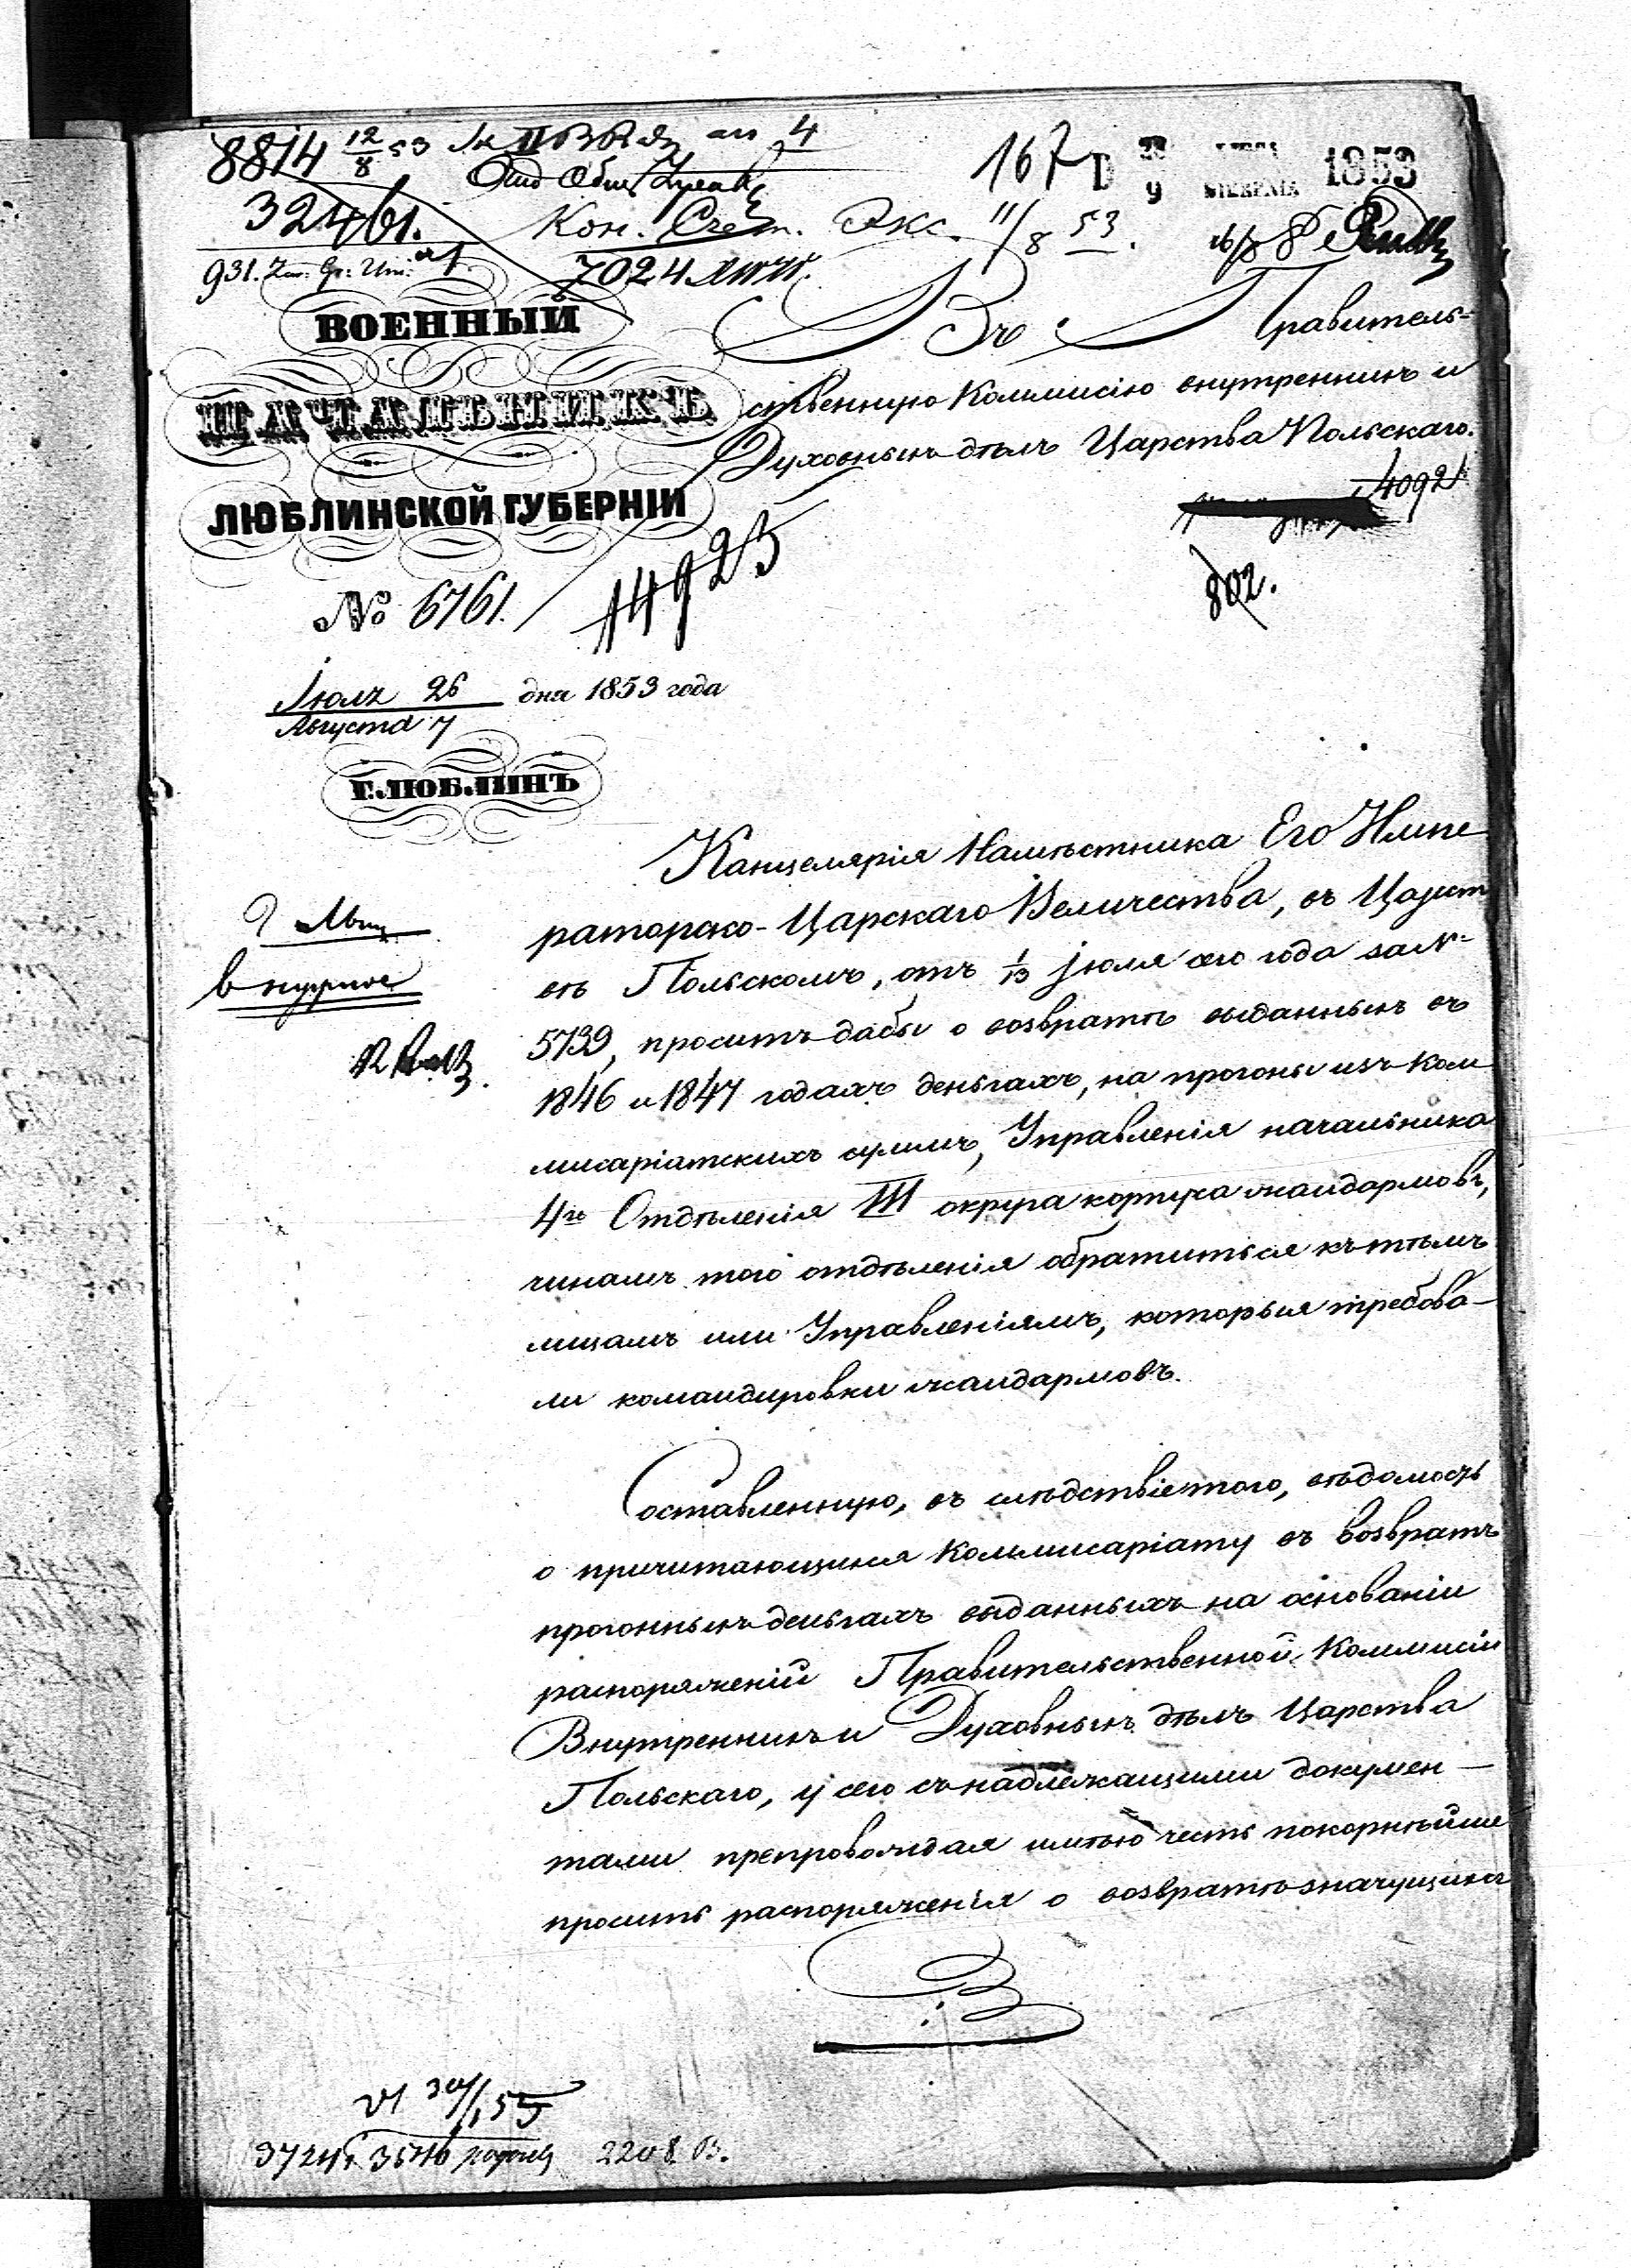 8814 12/8 53
32461.
Кон. Счетн. Экс. 11/8 53.
7024
167
D 28/9 1853
ВОЕННЫЙ
НАЧАЛЬНИКЪ
ЛЮБЛИНСКОЙ ГУБЕРНІИ
№ 6761.
14925
Іюля 26 дня 1853 года
Августа 7
Г. ЛЮБЛИНЪ
Въ Правитель-
ственную Коммисію внутреннихъ и
Духовныхъ дѣлъ Царства Польскаго.
14092
802.
Канцелярія Намѣстника Его Импе
раторско-Царскаго Величества, въ Царст
вѣ Польскомъ, отъ 1/13 Іюля сего года за №
5739, проситъ дабы о возвратѣ выданныхъ въ
1846 и 1847 годахъ деньгахъ, на прогоны изъ ком
мисаріатскихъ суммъ, Управленія начальника
4го Отдѣленія III округа корпуса жандармовъ,
чинамъ того отдѣленія обратиться къ тѣмъ
лицамъ или Управленіямъ, которыя требова-
ли командировки жандармовъ.
Составленную, въ слѣдствіе того, вѣдомость
о причитающихся Коммисаріату въ возвратъ
прогонныхъ деньгахъ выданныхъ на основаніи
распоряженій Правительственной Коммисіи
Внутреннихъ и Духовныхъ дѣлъ Царства
Польскаго, у сего съ надлежащими докумен-
тами препровождая имѣю честь покорнѣйше
просить распоряженія о возвратѣ значущихся
2208 В.